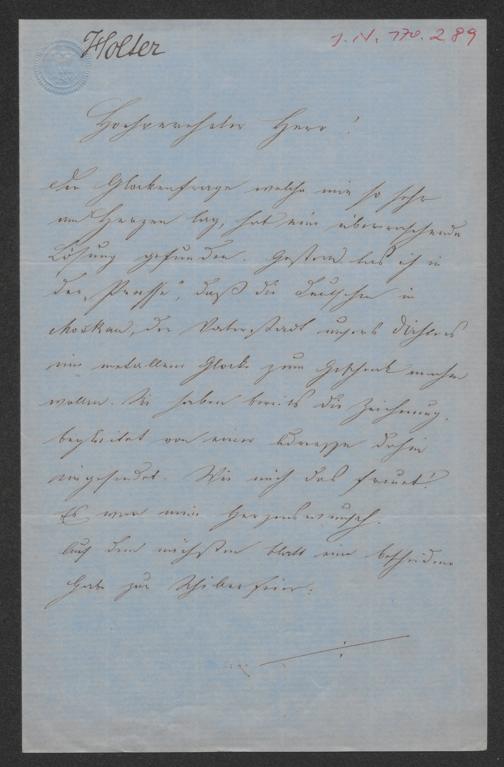 Holter
J.N. 170.289
Hochverehrter Herr!
Die Glockenfrage welche mir so sehr
am Herzen lag, hat eine überraschende
Lösung gefunden. Gestern las ich in
der „Presse“, daß die Deutschen in
Moskau, der Vaterstadt unsers Dichters
eine metallene Glocke zum Geschenk machen
wollen. Sie haben bereits die Zeichnung,
begleitet von einer Adresse dahin
eingesendet. Wie mich das freuet!
Es war mein Herzenswunsch.
Auf dem nächsten Blatt eine bescheidene
Gabe zur Schillerfeier.